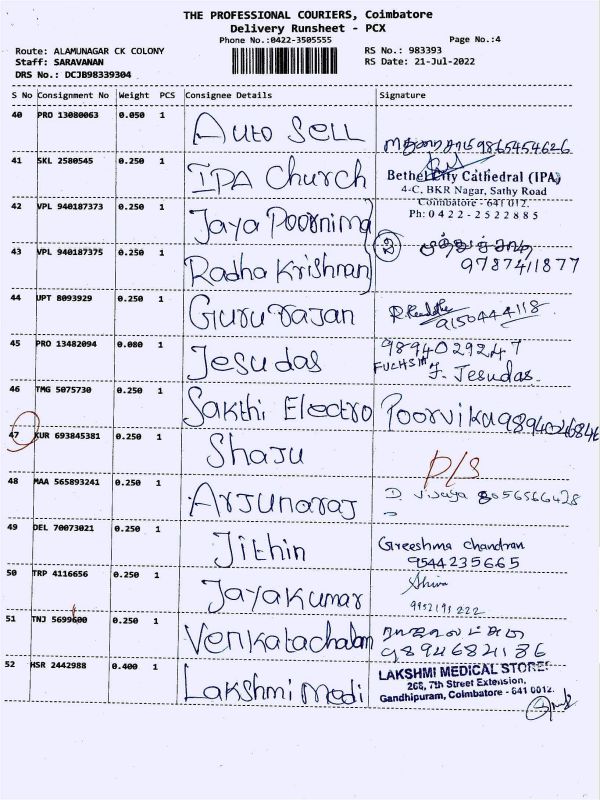 THE PROFESSIONAL COURIERS, Coimbatore
Delivery Runsheet - PCX
Phone No.:0422-3505555
Page No.:4
Route: ALAMUNAGAR CK COLONY
RS No.: 983393
Staff: SARAVANAN
RS Date: 21-Jul-2022
DRS No.: DCJB98339304
S No Consignment No Weight PCS Consignee Details Signature
40 PRO 13080063 0.050 1 Auto SELL 9865454626
41 SKL 2580545 0.250 1 IPA Church
Bethel City Cathedral (IPA)
4-C, BKR Nagar, Sathy Road
Coimbatore - 641 012.
Ph: 0422-2522885
42 VPL 940187373 0.250 1 Jaya Poornima
43 VPL 940187375 0.250 1 Radha Krishnan 9787411877
44 UPT 8093929 0.250 1 Gururajan 9150444118
45 PRO 13482094 0.080 1 Jesudas 9894029247
FUCHSIA
J. Jesudas.
46 TMG 5075730 0.250 1 Sakthi Electro Poorvika 9894026846
47 KUR 693845381 0.250 1 Shaju D/S
48 MAA 565893241 0.250 1 Arjunaraj D Vijaya 8056566428
49 DEL 70073021 0.250 1 Jithin Greeshma Chandran
9544235665
50 TRP 4116656 0.250 1 Jayakumar Shiva
9952193222
51 TNJ 5699600 0.250 1 Venkatachalam
9894684136
52 HSR 2442988 0.400 1 Lakshmi Medi
LAKSHMI MEDICAL STORES
268, 7th Street Extension,
Gandhipuram, Coimbatore - 641 0012.